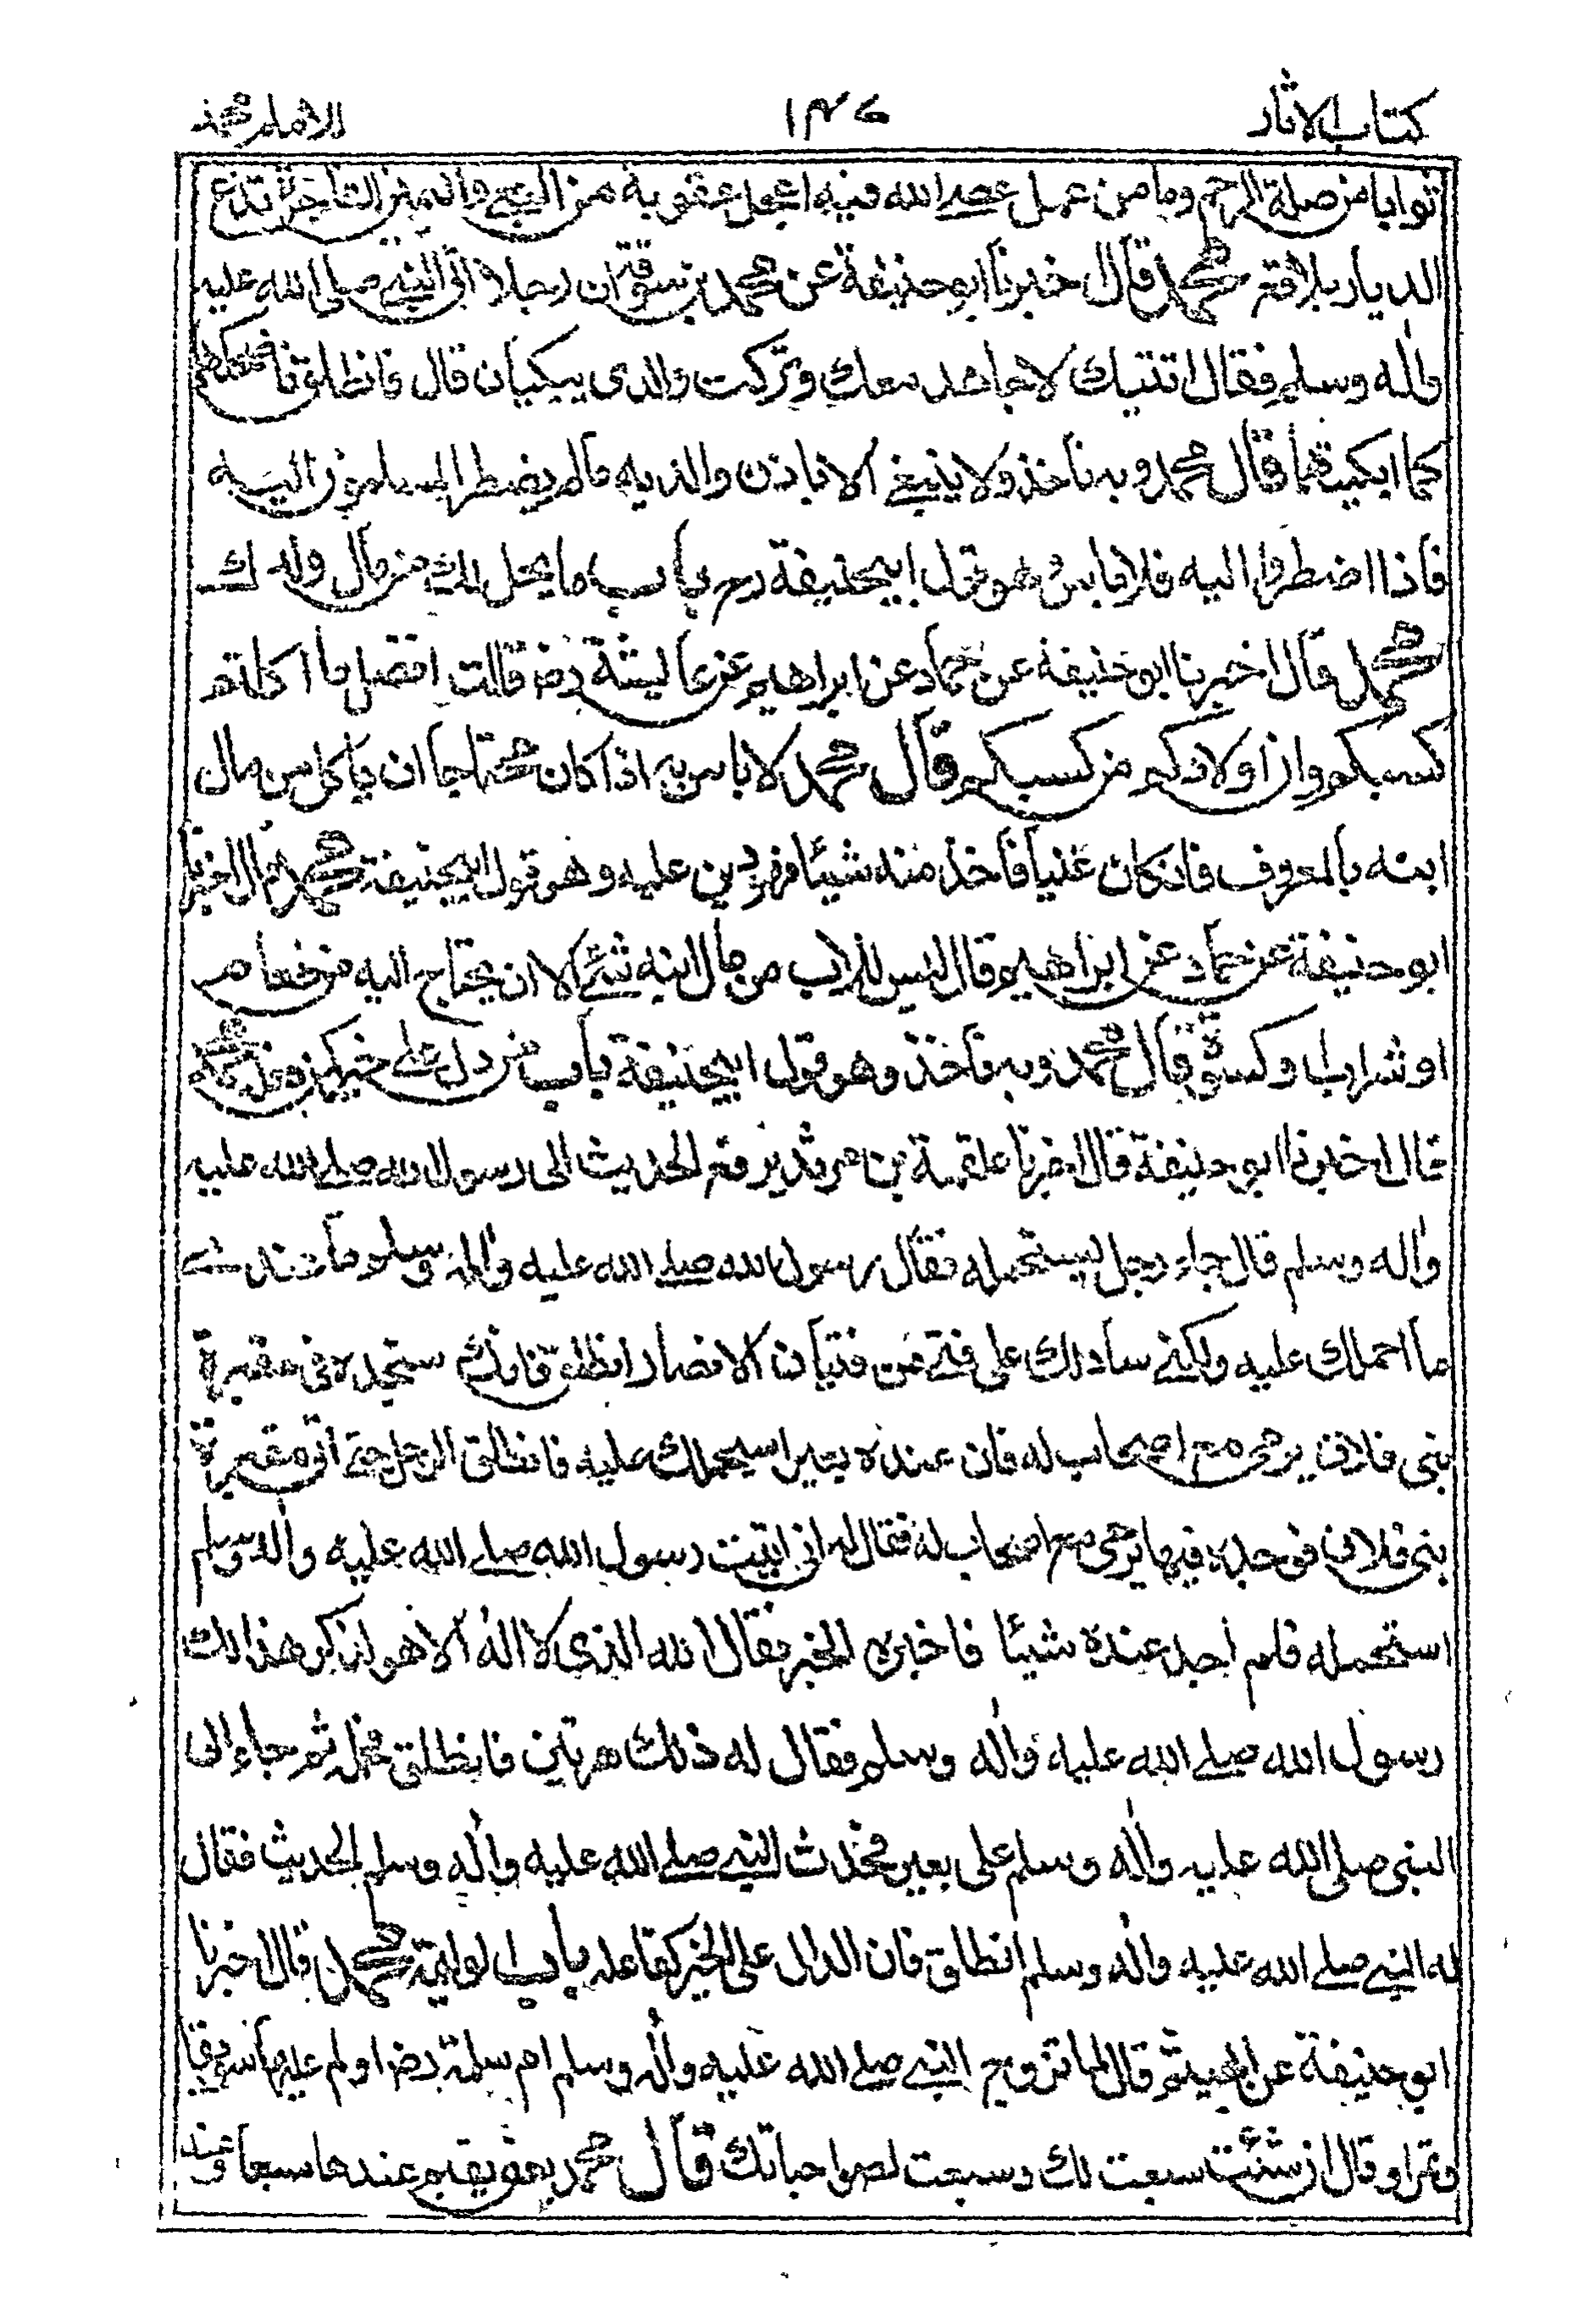 كتاب الاثار ١٤٦ للامام محمد
ثوابا من صلة الرحم وما من عمل عصى الله فيه اعجل عقوبة من البغى واليمين الفاجرة تدع
الديار بلاقع محمد قال اخبرنا ابو حنيفة عن محمد بن سوقة ان رجلا اتى النبى صلى الله عليه
واٰله وسلم فقال اتيتك لاجاهد معك وتركت والدى يبكيان قال فانطلق فاضحكهما
كما ابكيتهما قال محمد وبه ناخذ ولا ينبغى الا باذن والديه مالم يضطر المسلمون اليه
فاذا اضطروا اليه فلا باس وهو قول ابيحنيفة رح باب ما يحل لك من مال ولدك
محمد قال اخبرنا ابو حنيفة عن حماد عن ابراهيم عن عايشة رض قالت افضل ما اكلتم
كسبكم وان اولادكم من كسبكم قال محمد لا باس به اذا كان محتاجا ان ياكل من مال
ابنه بالمعروف فان كان غنيا فاخذ منه شيئا فهو دين عليه وهو قول ابيحنيفة محمد قال اخبرنا
ابو حنيفة عن حماد عن ابراهيم قال ليس للاب من مال ابنه شئ الا ان يحتاج اليه من طعام
او شراب او كسوة قال محمد وبه ناخذ وهو قول ابيحنيفة باب من دل على خير كمن فعله محمد
قال اخبرنا ابو حنيفة قال اخبرنا علقمة بن مرثد يرفع الحديث الى رسول الله صلے الله عليه
واٰله وسلم قال جاء رجل ليستحمله فقال رسول الله صلے الله عليه واٰله وسلم ما عندے
ما احملك عليه ولكنى سادلك على فتى من فتيان الانصار انطلق فانك ستجده فى مقبرة
بنى فلان يرمى مع اصحاب له فان عنده بعيرا سيحملك عليه فانطلق الرجل حتى اتى مقبرة
بنى فلان فوجده فيها يرمى مع اصحاب له فقال له انى اتيت رسول الله صلے الله عليه واٰله وسلم
استحمله فلم اجد عنده شيئا فاخبره الخبر فقال الله الذى لا اله الا هو لذكر هذا لك
رسول الله صلے الله عليه واٰله وسلم فقال له ذلك مرتين فانطلق فحمله ثم جاء الى
النبى صلى الله عليه واٰله وسلم على بعير فحدث النبى صلے الله عليه واٰله وسلم الحديث فقال
له النبى صلے الله عليه واٰله وسلم انطلق فان الدال على الخير كفاعله باب الوليمة محمد قال اخبرنا
ابو حنيفة عن الهيثم قال لما تزوج النبى صلے الله عليه واٰله وسلم ام سلمة رض اولم عليها سويقا
وتمرا وقال ان شئت سبعت لك وسبعت لصواحباتك قال محمد يعنى يقيم عندها سبعا وعند